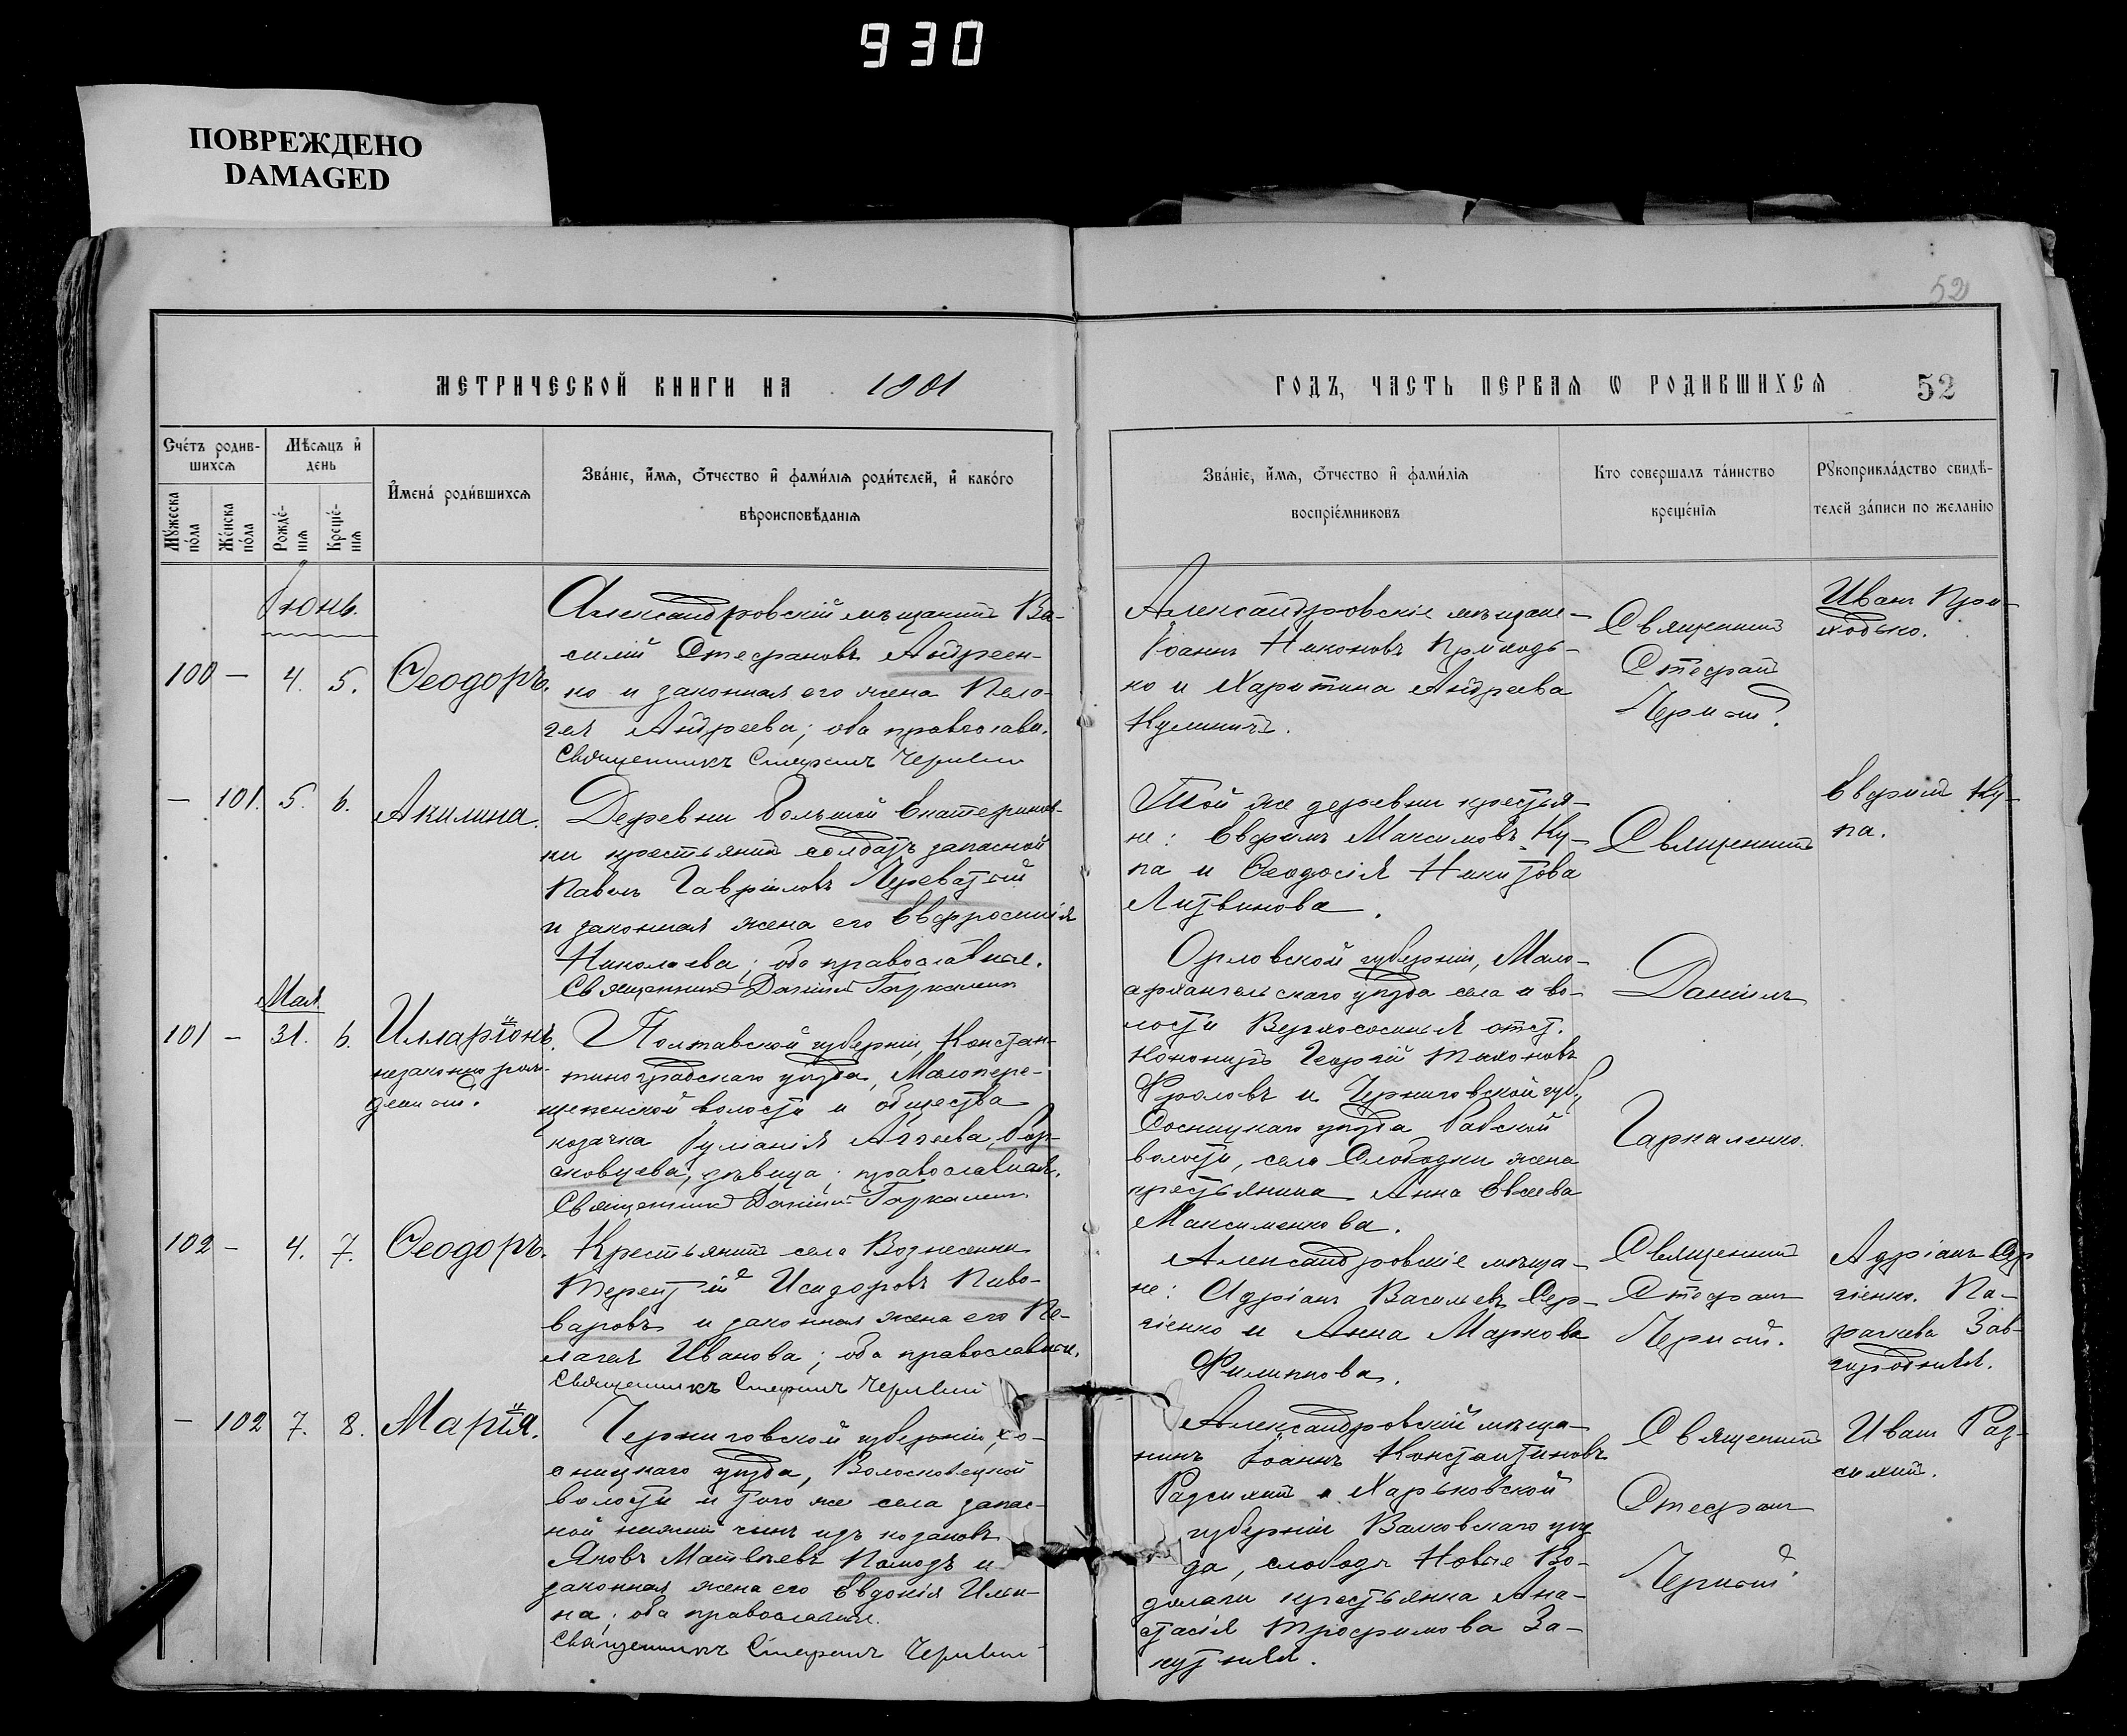 930
ПОВРЕЖДЕНО
DAMAGED
52
МЕТРИЧЕСКОЙ КНИГИ НА 1901
ГОДЪ, ЧАСТЬ ПЕРВАЯ Ѡ РОДИВШИХСЯ 52
Сче́тъ родив-
шихсѧ
Мѣсѧцъ и҆
день
Мꙋ́жеска
по́ла
Же́нска
по́ла
Рожде́-
нїѧ
Креще́-
нїѧ
И҆мена̀ роди́вшихсѧ
Зва́нїе, и҆́мѧ, ѻ҆́тчество и҆ фами́лїѧ роди́телей, и҆ како́го
вѣроисповѣ́данїѧ
Зва́нїе, и҆́мѧ, ѻ҆́тчество и҆ фами́лїѧ
воспрїе́мниковъ
Кто совершалъ та́инство
креще́нїѧ
Рꙋкоприкла́дство свидѣ́-
телей за́писи по желанїю
Іюнь.
100 — 4. 5. Ѳеодоръ.
Александровскій мѣщанинъ Ва-
силій Стефановъ Андреен-
ко и законная его жена Пела-
гея Андреева; оба православн.
Священникъ Стефанъ Черный
Александровскіе мѣщане
Іоаннъ Никоновъ Приходь-
ко и Харитина Андреева
Священникъ
Стефанъ
Черный.
Иванъ При-
ходько.
— 101. 5. 6. Акилина.
Деревни Большой Екатеринов-
ки крестьянинъ солдатъ запасной
Павелъ Гавріиловъ
и законная жена его Евфросинія
Николаева; оба православные.
Священникъ Даніилъ Гаркаленко
Той же деревни крестья-
не: Евфимъ Максимовъ Ку-
па и Ѳеодосія Никитова
Литвинова.
Священникъ
Даніилъ
Гаркаленко.
Евфимъ Ку-
па.
Мая
101 — 31. 6. Илларіонъ.
незаконно рож-
денный.
Полтавской губерніи, Констан-
тиноградскаго уѣзда, Малопере-
щепенской волости и общества
козачка Іуліанія Аггеева Бор-
сковцева, дѣвица; православная.
Священникъ Даніилъ Гаркаленко
Орловской губерніи, Мало-
архангельскаго уѣзда села и во-
лости Верхососенья отст.
канониръ Георгій Тихоновъ
Фроловъ и Черниговской губ.,
Сосницкаго уѣзда Бабской
волости, села Слободки жена
крестьянина Анна Евсеева
Максименкова.
102 — 4. 7. Ѳеодоръ.
Крестьянинъ села Вознесенки
Терентій Исидоровъ Пиво-
варовъ и законная жена его Пе-
лагея Иванова; оба православные.
Священникъ Стефанъ Черный
Александровскіе мѣща-
не: Адріанъ Васильевъ Сер-
гіенко и Анна Маркова
Филиппова.
Священникъ
Стефанъ
Черный.
Адріанъ Сер
гіенко. Па-
раскева Зав-
городняя.
— 102 7. 8. Марія.
Черниговской губерніи, Со-
сницкаго уѣзда, Волосковецкой
волости и того же села запас-
ной нижній чинъ изъ козаковъ
Яковъ Матвѣевъ Помазъ и
законная жена его Евдокія Ильи-
на; оба православные.
Священникъ Стефанъ Черный
Александровскій мѣща-
нинъ Іоаннъ Константиновъ
и Харьковской
губерніи Валковскаго уѣз
да, слободы Новые Во-
долаги крестьянка Ана-
стасія Трофимова За-
кутняя.
Священникъ
Стефанъ
Черный.
Иванъ